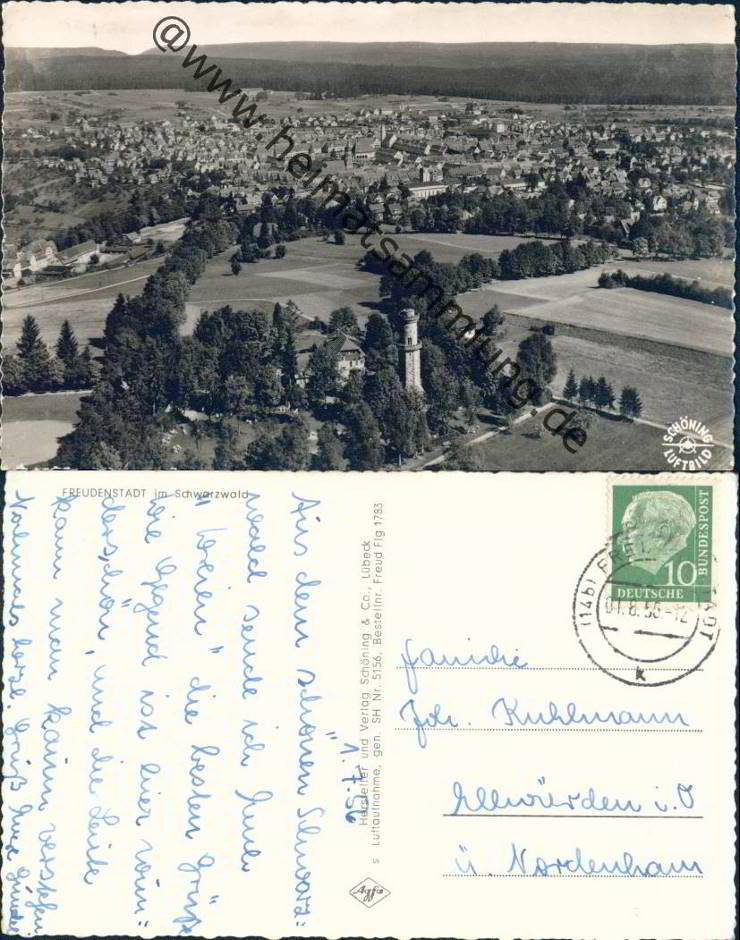 @www.heimatsammlung.de
SCHÖNING
LUFTBILD
FREUDENSTADT im Schwarzwald
1. 7. 56
Aus dem schönen Schwarz=
wald sende ich Euch
die besten Grüße
die Gegend ist hier wun=
derschön, und die Leute
kann man kaum verstehen
Nochmals herzl. Grüß
Hersteller und Verlag Schöning & Co., Lübeck
s Luftaufnahme, gen. SH Nr. 5156, Bestellnr. Freud Flg 1783
Agfa
10
DEUTSCHE
BUNDESPOST
(14b)
01.8.56.-12
k
Familie
Joh. Kuhlmann
Ellwürden i. O
ü. Nordenham